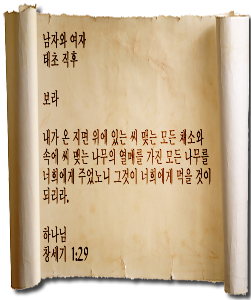 남자와 여자
태초 직후
보라
내가 온 지면 위에 있는 씨 맺는 모든 채소와
속에 씨 맺는 나무의 열매를 가진 모든 나무를
너희에게 주었노니 그것이 너희에게 먹을 것이
되리라.
하나님
창세기 1:29